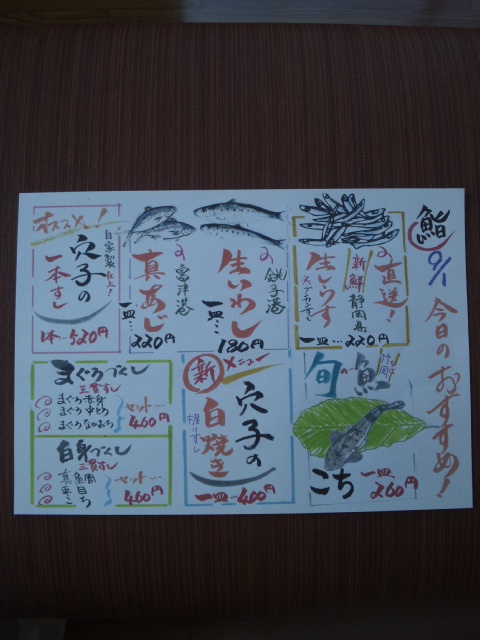 鮨
9/1
今日のおすすめ!
直送!
新鮮 静岡県
生しらす
一皿…220円
銚子港の
生いわし
一皿…
180円
富津港の
真あじ
一皿…
220円
オススメ!
自家製 仕上!
穴子の
一本すし
1本…520円
旬の魚
こち
一皿
260円
新メニュー
穴子の
白焼き
握りすし
一皿…400円
まぐろづくし
三貫すし
まぐろ赤身
まぐろ中とろ
まぐろなかおち
セット…
460円
白身づくし
三貫すし
真鯛
セット…
460円